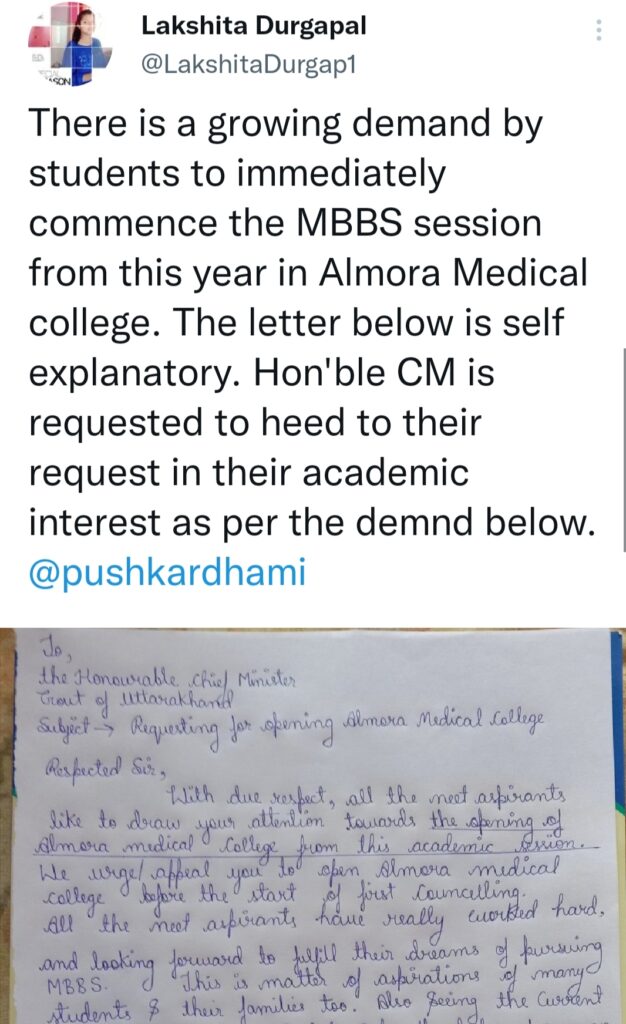 Lakshita Durgapal
@LakshitaDurgap1
There is a growing demand by
students to immediately
commence the MBBS session
from this year in Almora Medical
college. The letter below is self
explanatory. Hon'ble CM is
requested to heed to their
request in their academic
interest as per the demnd below.
@pushkardhami
To,
the Honourable Chief Minister
Govt of Uttarakhand
Subject → Requesting for opening Almora Medical College
Respected Sir,
With due respect, all the neet aspirants
like to draw your attention towards the opening of
Almora medical College from this academic session.
We urge/appeal you to open Almora medical
college before the start of first Councelling.
All the neet aspirants have really worked hard,
and looking forward to fulfill their dreams of pursuing
MBBS. This is matter of aspirations of many
students & their families too. Also seeing the current